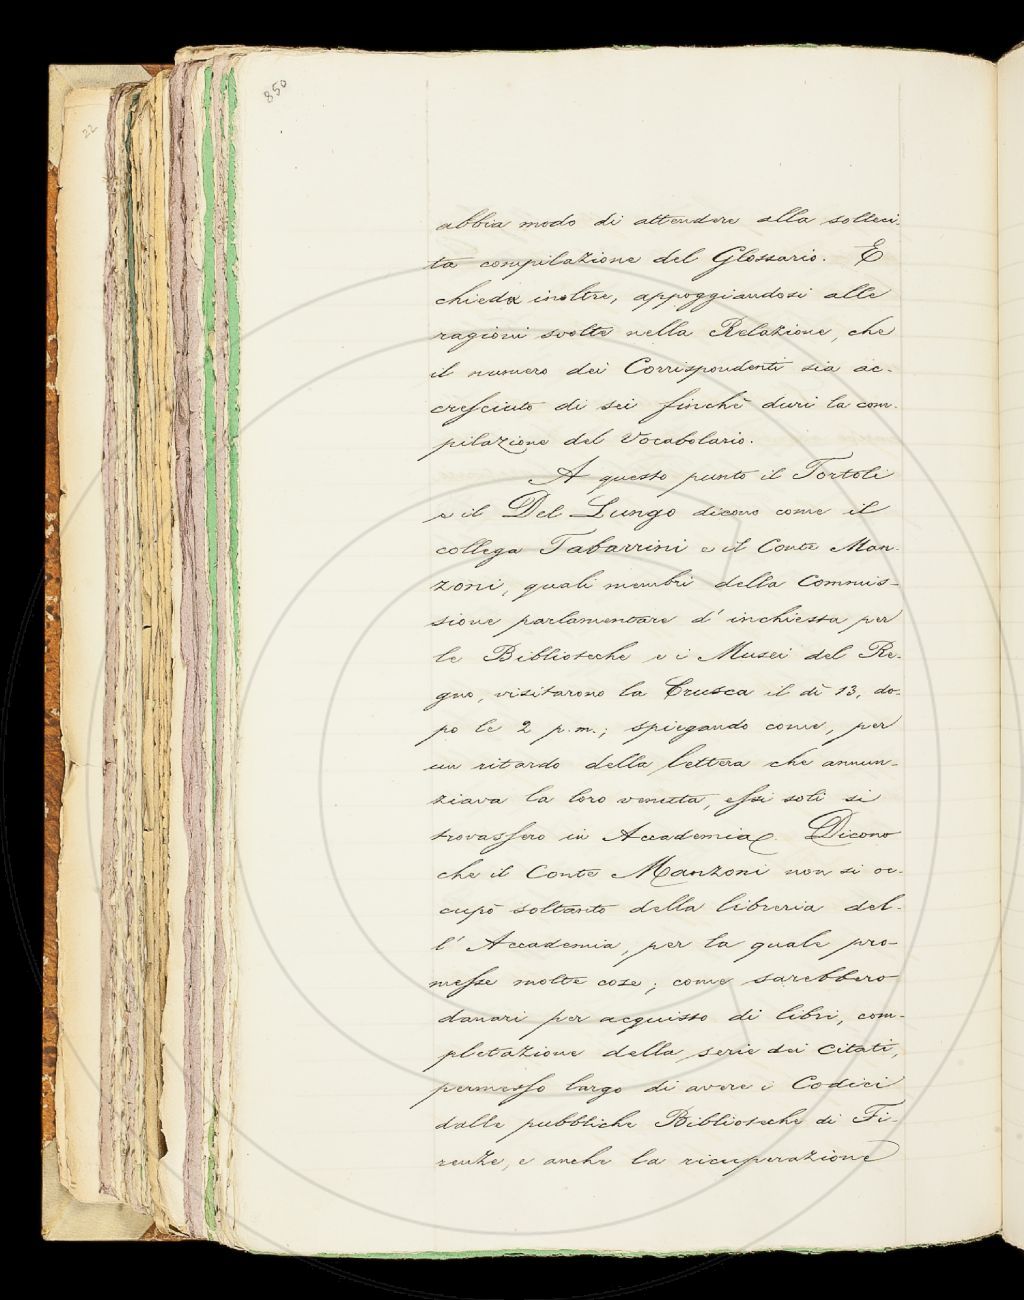 850
22
abbia modo di attendere alla solleci-
ta compilazione del Glossario. E
chieda inoltre, appoggiandosi alle
ragioni svolte nella Relazione, che
il numero dei Corrispondenti sia ac-
cresciuto di sei finchè duri la com-
pilazione del Vocabolario.
A questo punto il Tortoli
e il Del Lungo dicono come il
collega Tabarrini e il Conte Man-
zoni, quali membri della Commis-
sione parlamentare d' inchiesta per
le Biblioteche e i Musei del Re-
gno, visitarono la Crusca il dì 13, do-
po le 2 p.m.; spiegando come, per
un ritardo della lettera che annun-
ziava la loro venuta, essi soli si
trovassero in Accademia. Dicono
che il Conte Manzoni non si oc-
cupò soltanto della libreria del-
l' Accademia, per la quale pro-
messe molte cose; come sarebbero
danari per acquisto di libri, com-
pletazione della serie dei Citati,
permesso largo di avere i Codici
dalle pubbliche Biblioteche di Fi-
renze, e anche la ricuperazione